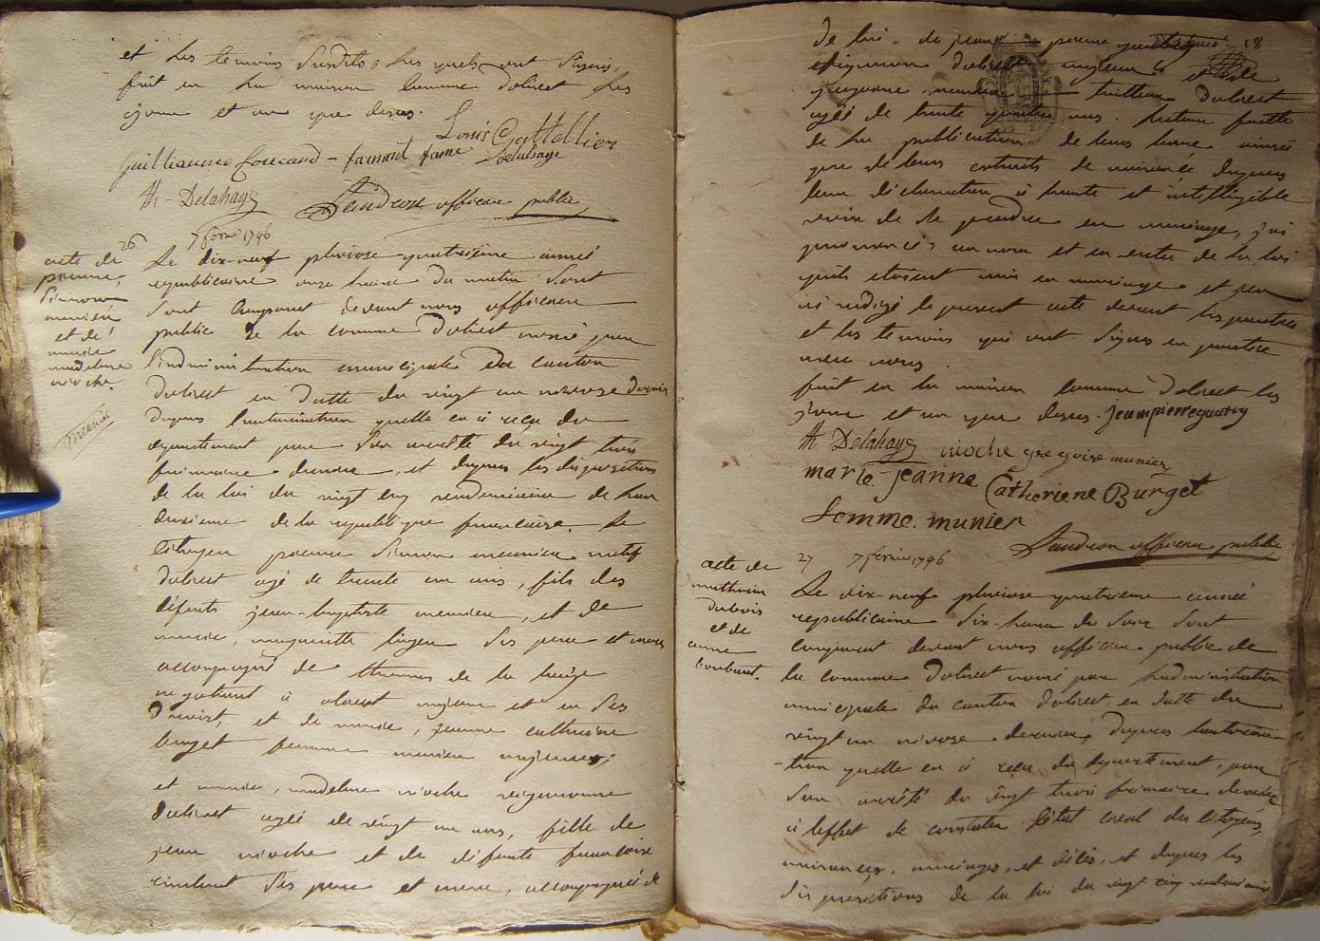 et les temoins susdits, les quels ont signés,
fait en la maison commune d'olivet les
jour et an que dessus.
Louis Gattellier
guilleaume Coucaud - famard fame Delahaye
th - Delahaye Landron officier public
26 7 fevrier 1796
acte de
pierre,
Simon
munier
et de
marie
madelene
rioche.
Le dix-neuf pluviose quatrieme année
republicaine onze heure du matin sont
sont comparut devant nous officier
public de la commune d'olivet nomé par
l'administration municipale du canton
d'olivet en datte du vingt un nivose dernier
dapres l'autorisation quelle en a reçu du
departement par son arreté du vingt trois
frimaire dernier, et dapres les dispositions
de la loi du vingt cinq vendemiaire de l'an
deuxieme de la republique francaise. Le
Citoyen pierre Simon meunier natif
d'olivet agé de trente un ans, fils des
défunts jean-baptiste meunier, et de
marie, marguerite ses pere et mere
accompagné de thomas de la haÿe
negotiant à olivet majeur et en ses
droits, et de marie, jeanne catherine
burget femme munier majeure;
et marie, madelene rioche
d'olivet agé de vingt un ans, fille de
jean rioche et de défunte francoise
ses pere et mere, accompagnée de
18
de lui. de jean pierre
vigneron d'olivet majeur et de
gregoire meunier tailleur d'olivet
agé de trente quatre ans. lecture faitte
de la publication de leurs bans ainsi
que de leurs extraits de naissance dapres
leur déclaration à haute et intelligible
voix de se prendre en mariage, j'ai
prononcé, au nom et en vertu de la loi
quils etoient unis en mariage et jen
ai redigé le present acte devant les parties
et les temoins qui ont signés en
avec nous.
fait en la maison commune d'olivet les
jour et an que dessus. jean pierre quatry
th Delahaye rioche gregoire munier
marie-jeanne Catheriene Burget
femme. munier
Landron officier public
27 7 fevrier 1796
acte de
mathurin
dubois
et de
anne
Le dix-neuf pluviose quatrieme année
republicaine six-heure du soir sont
comparut devant nous officier public de
la commune d'olivet nomé par l'administration
municipale du canton d'olivet en datte du
vingt un nivose dernier, dapres lautorisa-
-tion quelle en a reçu du departement, par
son arreté du vingt trois frimaire dernier
à leffet de constater létat civil des citoyens,
naissances, mariages, et décés, et dapres les
dispositions de la loi du vingt cinq vendemiaire